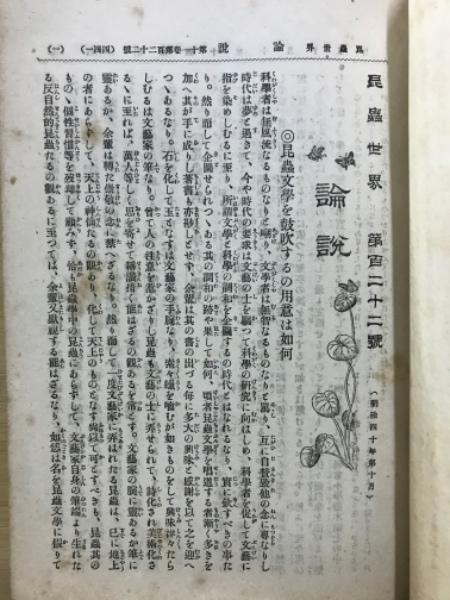 昆蟲世界 第百二十二號
（明治四十年第十月）
論說
◎昆蟲文學を鼓吹するの用意は如何
科學者は無風流なるものなりと嘲り、文學者は無智なるものなりと罵り、互に自發排他の念に專なりし
時代は夢と過ぎて、今や時代の要求は文藝の士を驅つて科學の研究に向はしめ、科學者を促して文藝に
指を染めしむるに至り、所謂文學と科學の調和を企圖するの時代とはなれるなり、實に歡ぶべきの事た
り。然り而して企圖せられつゝある其の調和の跡や果して如何、頃者昆蟲文學を唱道する者漸く多きを
加へ其が手に成りし著書も亦尠しとせず、余輩は其の書の出づる每に多大の興味と感謝を以て之を迎へ
つゝあるなり。石を化して玉となすは文藝家の手腕なり、索々蠟を嚙むが如きものをして興味津々たら
しむるは文藝家の筆なり。曾て人の注意を惹かざりし昆蟲も文藝の士に弄せられて、時代化され美術化さ
るゝに至れば、萬人等しく思を寄せて措く能はざるの觀あるを常とす。文藝家の腕に靈あるか筆に
靈あるか、余輩は轉た崇敬の念に禁へざるなり。然り而して一度文藝家に弄ばれたる昆蟲は、已に地上
の者にあらずして、天上の神仙たるの觀あり、化して天上のものとなす尙以て可とすべきも、昆蟲其の
ものゝ個性習慣等を沒却して顧みず、恰も昆蟲學中の昆蟲にあらずして、文藝家自身の筆端より生れた
る反自然的昆蟲たるの觀あるに至つては、余輩又默視する能はざるなり、如思は名を昆蟲文學に假りて
昆蟲世界 論說 第十一卷第百二十二號 （四四一） （一）